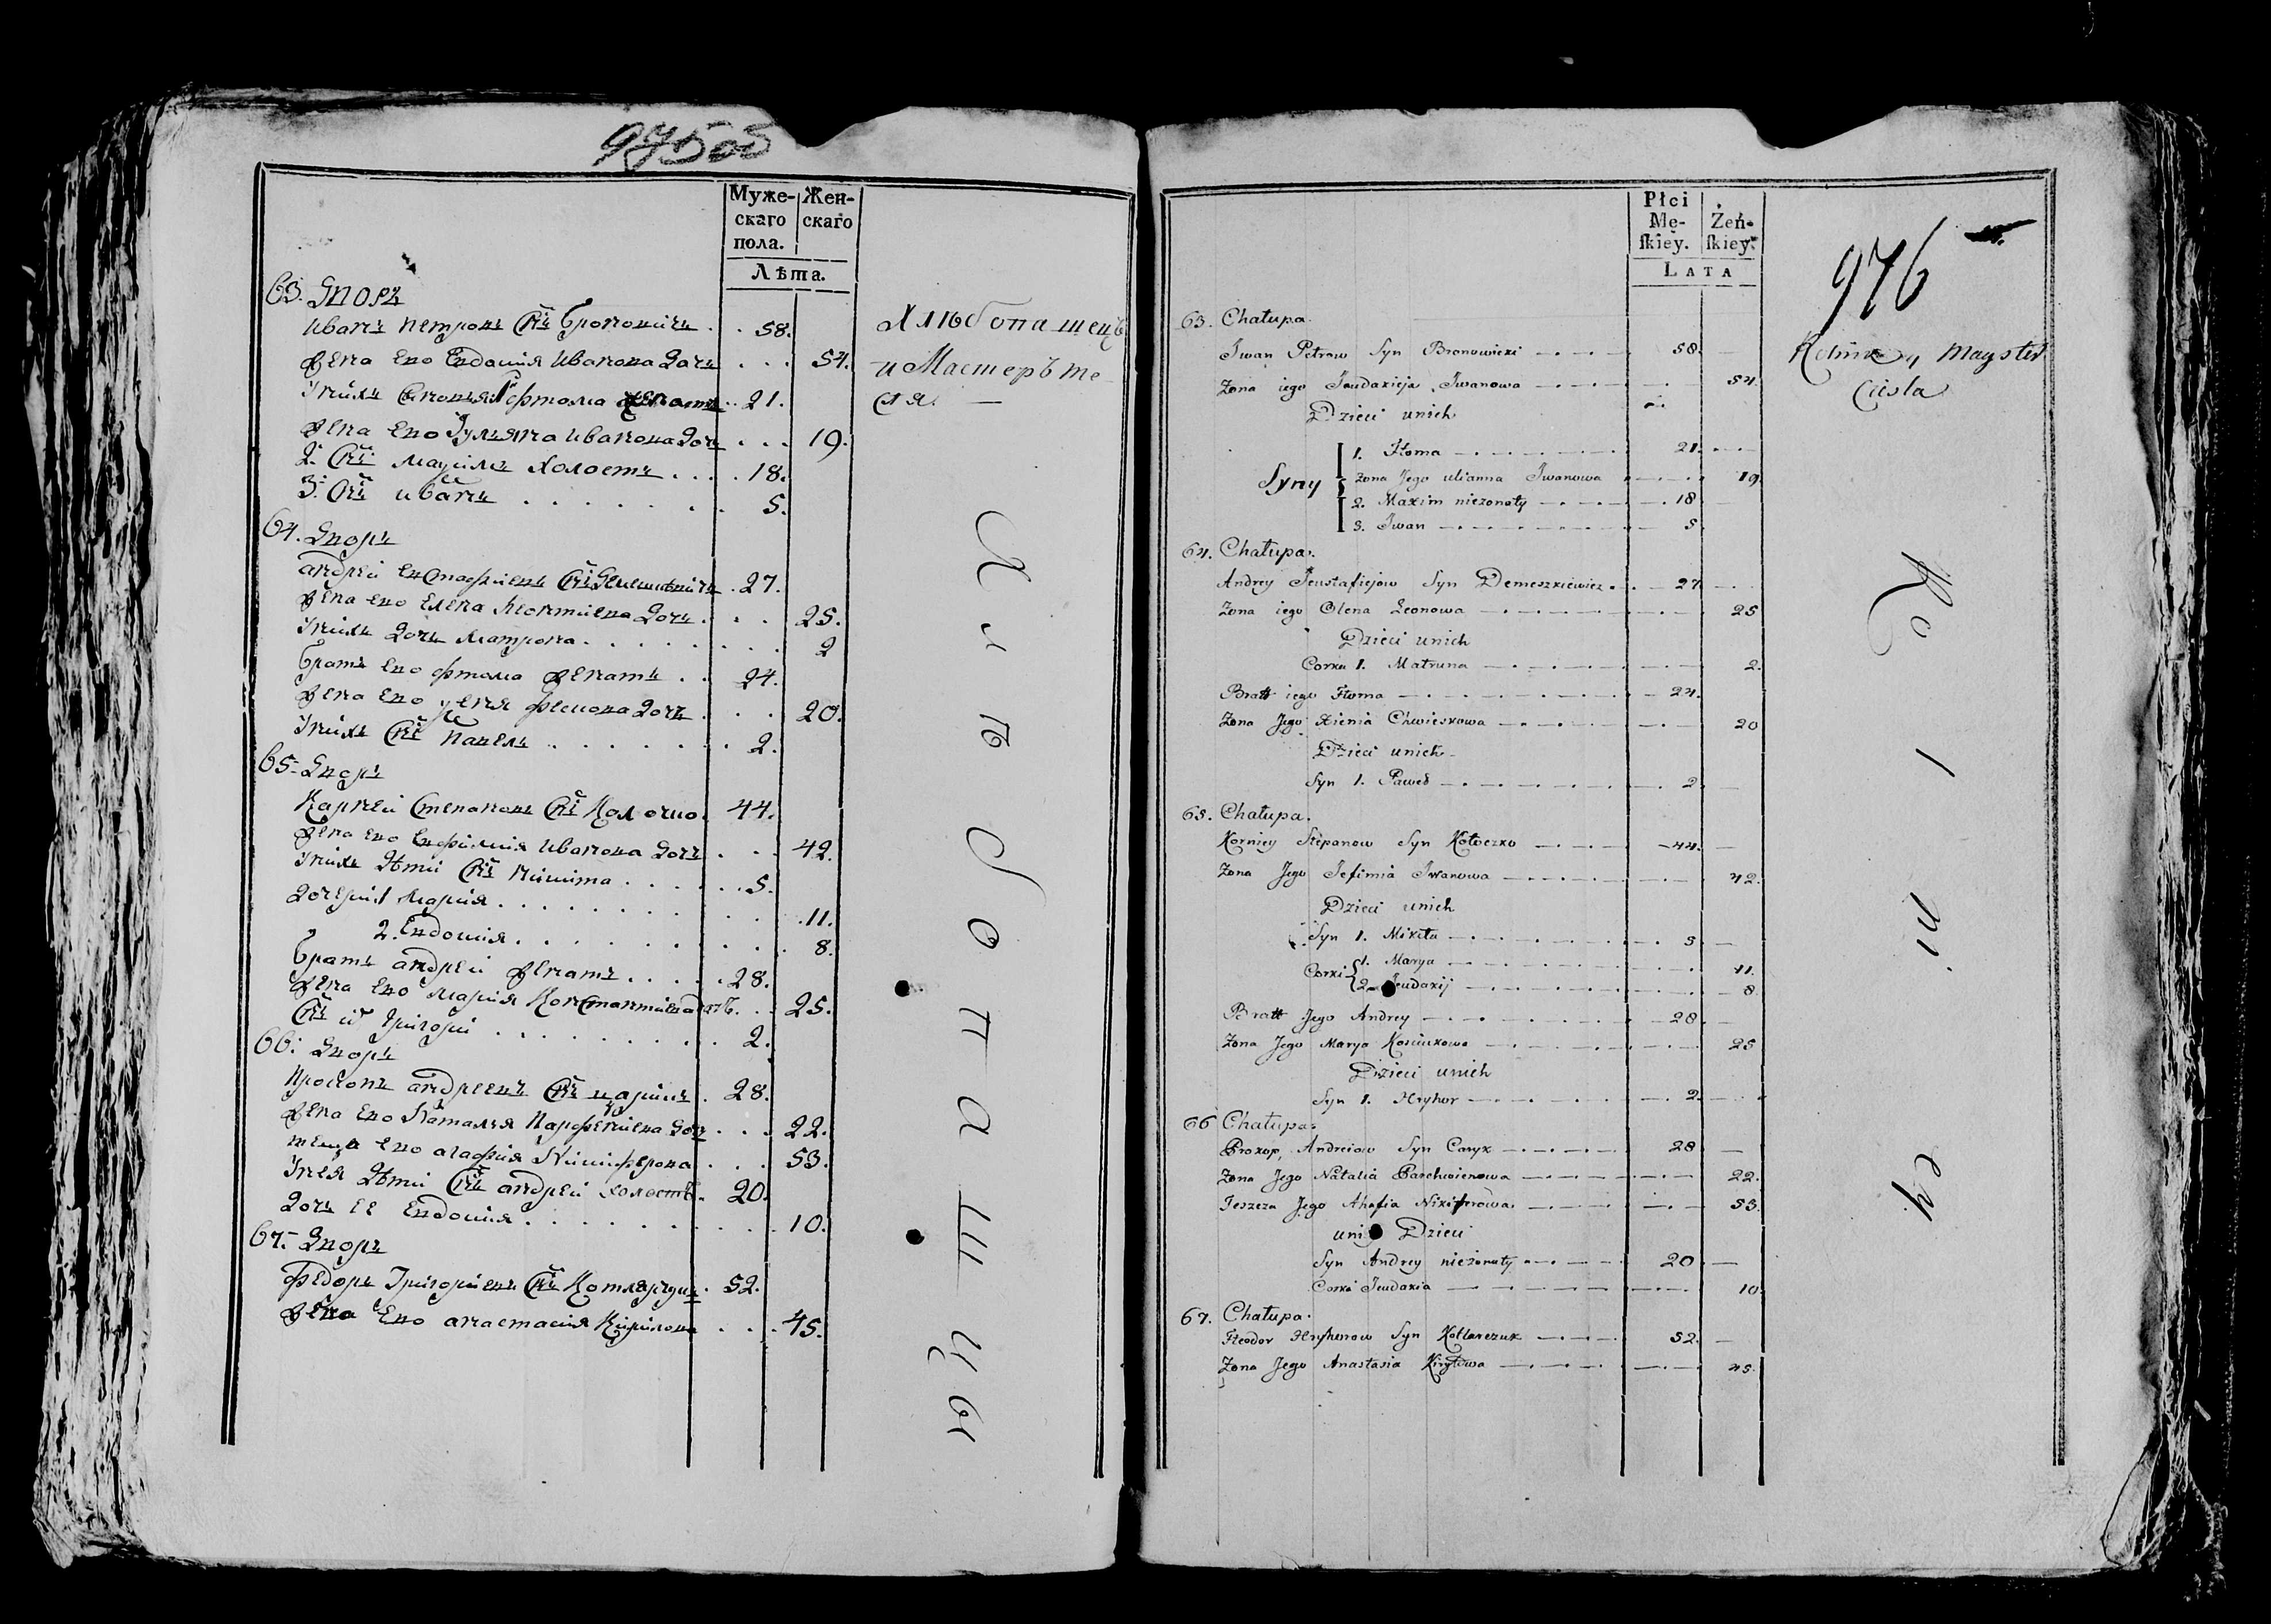 975 об
Муже-
скаго
пола.
Жен-
скаго
Лѣта.
63. Дворъ
Иванъ Петровъ Снъ Броновичъ . . 58.
Жена Ево Евдокия Иванова Дочь . . . 54.
У них Сыновья 1 Фтома женатъ . . 21.
Жена Ево Ульяна Иванова Дочь . . . 19.
2. Снъ Максимъ Холостъ . . . . 18.
3. Снъ Иванъ . . . . . . . 5.
Хлѣбопашецъ
и Мастеръ те
сля. —
64. Дворъ
Андрей Евстафиевъ Снъ . 27.
Жена Ево Елена Леонтиева Дочь . . . 25.
У них Дочь Матрона . . . . . . . 2
Братъ Ево Фтома Женатъ . . 24.
Жена Ево Дочь . . . 20.
У них Снъ Павелъ . . . . . . . 2.
65. Дворъ
Карней Степановъ Снъ Колочко . 44.
Жена Ево Евфимия Иванова Дочь . . . 42.
У них Дѣти Снъ Никита . . . . . . 5.
Дочери 1 Мария . . . . . . . . . . 11.
2. Евдокия . . . . . . . . . . 8.
Братъ Андрей Женатъ . . . . . 28.
Жена Ево Мария Константиева Дочь . . . 25.
Снъ Григори . . . . . . . . . 2.
66. Дворъ
Прокопъ Андреевъ Снъ Царикъ . 28.
Жена Ево Наталья Парфениева Дочь . . . 22.
Теща Ево Агафия Никифорова . . . 53.
У нея Дѣти Снъ Андрей Холостъ . 20.
Дочь Ее Евдокия . . . . . . . . . . 10.
67. Дворъ
Федоръ Григориевъ Снъ Котлярчукъ . 52.
Жена Ево Анастасия Кирилова . . . 45.
Хлѣбопашцы
Płci
Mę-
ſkiey.
Żeń-
ſkiey.
LATA
976
63. Chałupa.
Jwan Petrow Syn Bronowicki 58.
Zona iego Jeudaxieja Jwanowa 54.
Dzieci unich
Syny
1. Ftoma 21.
Zona Jego ulianna Jwanowa 19.
2. Maxim niezonaty 18
3. Jwan 5.
Rolniczy Mayster
Ciesla
64. Chałupa.
Andrey Jeustafiejow Syn Demeszkiewicz 27
Zona iego Olena Leonowa 25
Dzieci unich
Corka 1. Matruna 2.
Bratt iego Ftoma 24.
Zona Jego Xienia Chwieskowa 20
Dzieci unich
Syn 1. Paweł 2
65. Chałupa.
Korniey Stepanow Syn Kołoczko 44.
Zona Jego Jefimia Jwanowa 42.
Dzieci unich
Syn 1. Mikita 5
Corki 1. Marya 11.
2. Jeudaxij 8
Bratt Jego Andrey 28.
Zona Jego Marya Kosciukowa 25
Dzieci unich
Syn 1. Hryhor 2.
66 Chałupa.
Prokop, Andreiow Syn Caryk 28
Zona Jego Natalia Parchwienowa 22.
Teszcza Jego Ahafia Nikiforowa 53.
unij Dzieci
Syn Andrey nieżonaty 20
Corka Jeudaxia 10.
67. Chałupa.
Fteodor Hryhorow Syn Kotlarczuk 52.
Zona Jego Anastasia Kiryłowa 45.
Rolniey